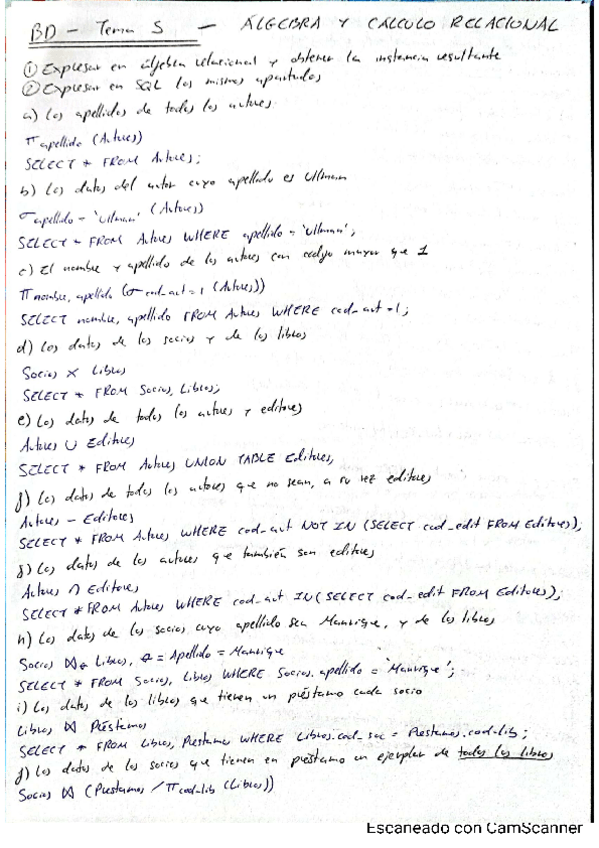 BD - Tema 5 - ÁLGEBRA Y CÁLCULO RELACIONAL
① Expresar en álgebra relacional y obtener la instancia resultante
② Expresar en SQL los mismos apartados
a) Los apellidos de todos los autores.
π apellido (Autores)
SELECT * FROM Autores;
b) Los datos del autor cuyo apellido es Ullman
σ apellido = 'Ullman' (Autores)
SELECT * FROM Autores WHERE apellido = 'Ullman';
c) El nombre y apellido de los autores con código mayor que 1
π nombre, apellido (σ cod_aut = 1 (Autores))
SELECT nombre, apellido FROM Autores WHERE cod_aut = 1;
d) Los datos de los socios y de los libros
Socios × Libros
SELECT * FROM Socios, Libros;
e) Los datos de todos los autores y editores
Autores ∪ Editores
SELECT * FROM Autores UNION TABLE Editores;
f) Los datos de todos los autores que no sean, a su vez editores
Autores - Editores
SELECT * FROM Autores WHERE cod_aut NOT IN (SELECT cod_edit FROM Editores);
g) Los datos de los autores que también son editores
Autores ∩ Editores
SELECT * FROM Autores WHERE cod_aut IN (SELECT cod_edit FROM Editores);
h) Los datos de los socios cuyo apellido sea Manrique, y de los libros
Socios ⋈θ Libros, θ = Apellido = Manrique
SELECT * FROM Socios, Libros WHERE Socios.apellido = 'Manrique';
i) Los datos de los libros que tienen en préstamo cada socio
Libros ⋈ Préstamos
SELECT * FROM Libros, Prestamos WHERE Libros.cod_soc = Prestamos.cod-lib;
j) Los datos de los socios que tienen en préstamo un ejemplar de todos los libros
Socios ⋈ (Prestamos / π cod-lib (Libros))
Escaneado con CamScanner